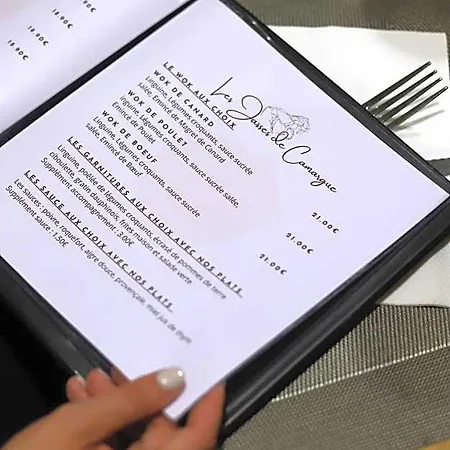 18.90€
18.90€
18.90€
Les Jasse de Camargue
LE WOK AUX CHOIX
WOK DE CANARD
Linguine, Légumes croquants, sauce sucrée
salée, Emincé de Magret de Canard
21.00€
WOK DE POULET
inguine, Légumes croquants, sauce sucrée salée,
Emincé de Poulet
21.00€
WOK DE BOEUF
Linguine, Légumes croquants, sauce sucrée
salée, Emincé de Bœuf
21.00€
LES GARNITURES AUX CHOIX AVEC NOS PLATS
Linguine, poêlée de légumes croquants, écrasé de pommes de terre
ciboulette, gratin dauphinois, frites maison et salade verte
Supplément accompagnement : 3.00€
LES SAUCE AUX CHOIX AVEC NOS PLATS
Les sauces : poivre, roquefort, aigre douce, provençale, miel jus de thym
Supplément sauce : 1.50€